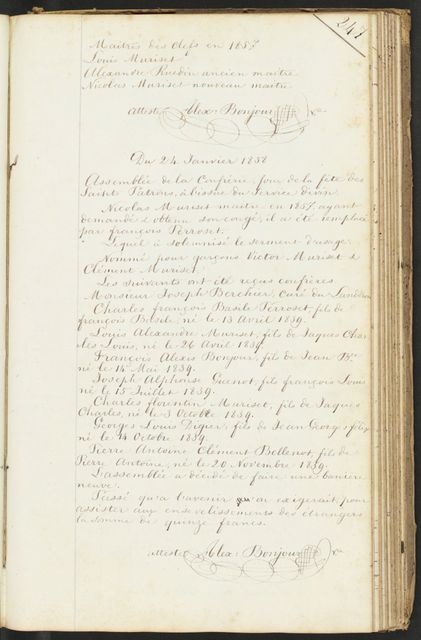 247
Maitres des Clefs en 1857
Louis Muriset
Alexandre Ruedin ancien maitre
Nicolas Muriset nouveau maitre
atteste Alex: Bonjour
Du 24 Janvier 1858
Assemblée de la Confrérie, jour de la fête des
Saints Patrons, à l'issue du service divin.
Nicolas Muriset maitre en 1857 ayant
demandé & obtenu son congé, il a été remplacé
par françois Perroset.
Lequel à solemnisé le serment d'usage.
Nommé pour garçons Victor Muriset &
Clément Muriset.
Les suivants ont été reçus confrères
Monsieur Joseph Berchier, Curé du Landeron
Charles françois Basile Perroset, fils de
françois Blaise, né le 13 Avril 1839.
Louis Alexandre Muriset, fils de Jaques Char
les Louis, né le 26 Avril 1839.
François Alexis Bonjour, fils de Jean Bte
né le 14 Mai 1839.
Joseph Alphonse Guenot, fils françois Louis
né le 15 Juillet 1839.
Charles florentin Muriset, fils de Jaques
Charles, né le 3 Octobre 1839.
Georges Louis Digier, fils de Jean Georges
né le 14 Octobre 1839.
Pierre Antoine Clément Bellenot, fils de
Pierre Antoine, né le 20 Novembre 1839.
L'assemblée a décidé de faire une banière
neuve.
Passé qu'à l'avenir on exigerait pour
assister aux ensevelissements des étrangers
la somme de quinze francs.
atteste Alex: Bonjour